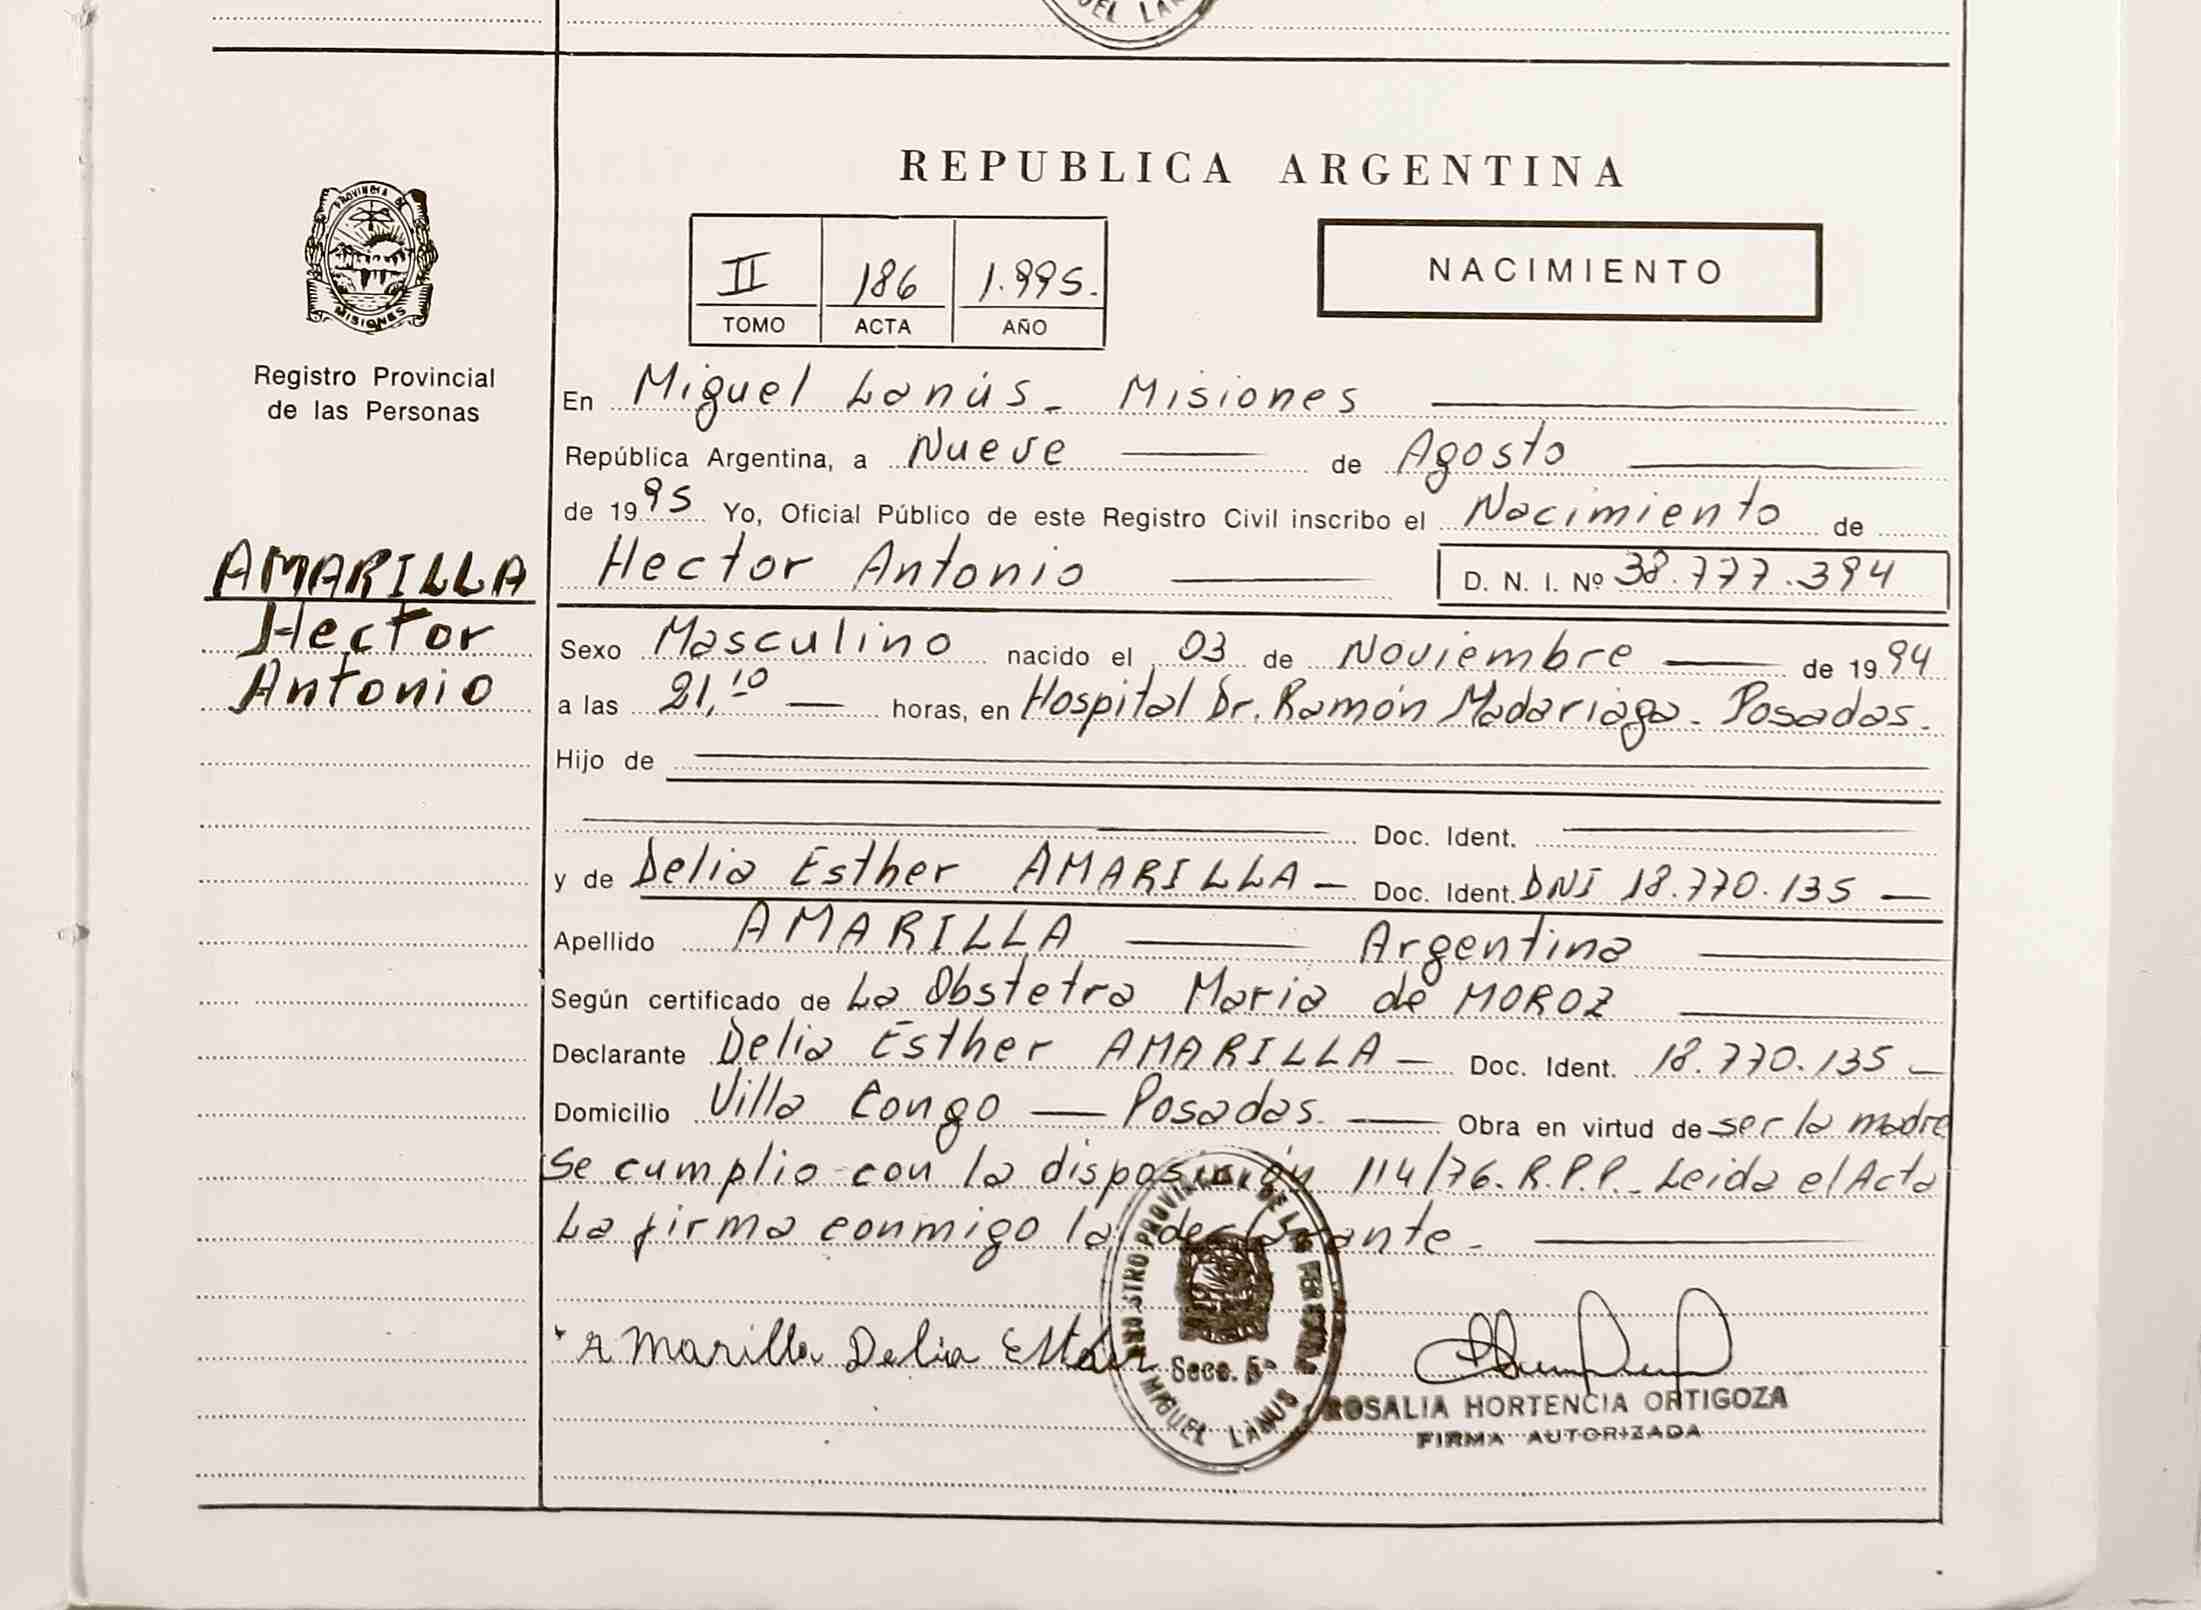 UEL LAN
REPUBLICA ARGENTINA
PROVINCIA DE
MISIONES
Registro Provincial
de las Personas
AMARILLA
Hector
Antonio
II 186 1.995.
TOMO ACTA AÑO
NACIMIENTO
En Miguel Lanús - Misiones
República Argentina, a Nueve de Agosto
de 1995 Yo, Oficial Público de este Registro Civil inscribo el Nacimiento de
Hector Antonio D. N. I. Nº 38.777.394
Sexo Masculino nacido el 03 de Noviembre de 1994
a las 21,10 horas, en Hospital Dr. Ramón Madariaga - Posadas.
Hijo de
Doc. Ident.
y de Delia Esther AMARILLA - Doc. Ident. DNI 18.770.135 -
Apellido AMARILLA Argentina
Según certificado de La Obstetra Maria de MOROZ
Declarante Delia Esther AMARILLA - Doc. Ident. 18.770.135 -
Domicilio Villa Congo - Posadas. - Obra en virtud de ser la madre
Se cumplio con la disposición 114/76. R.P.P. - Leida el Acta
La firma conmigo la declarante -
Amarilla Delia Ester
REGISTRO PROVINCIAL DE LAS PERSONAS
Secc. 5ª
MIGUEL LANUS
ROSALIA HORTENCIA ORTIGOZA
FIRMA AUTORIZADA